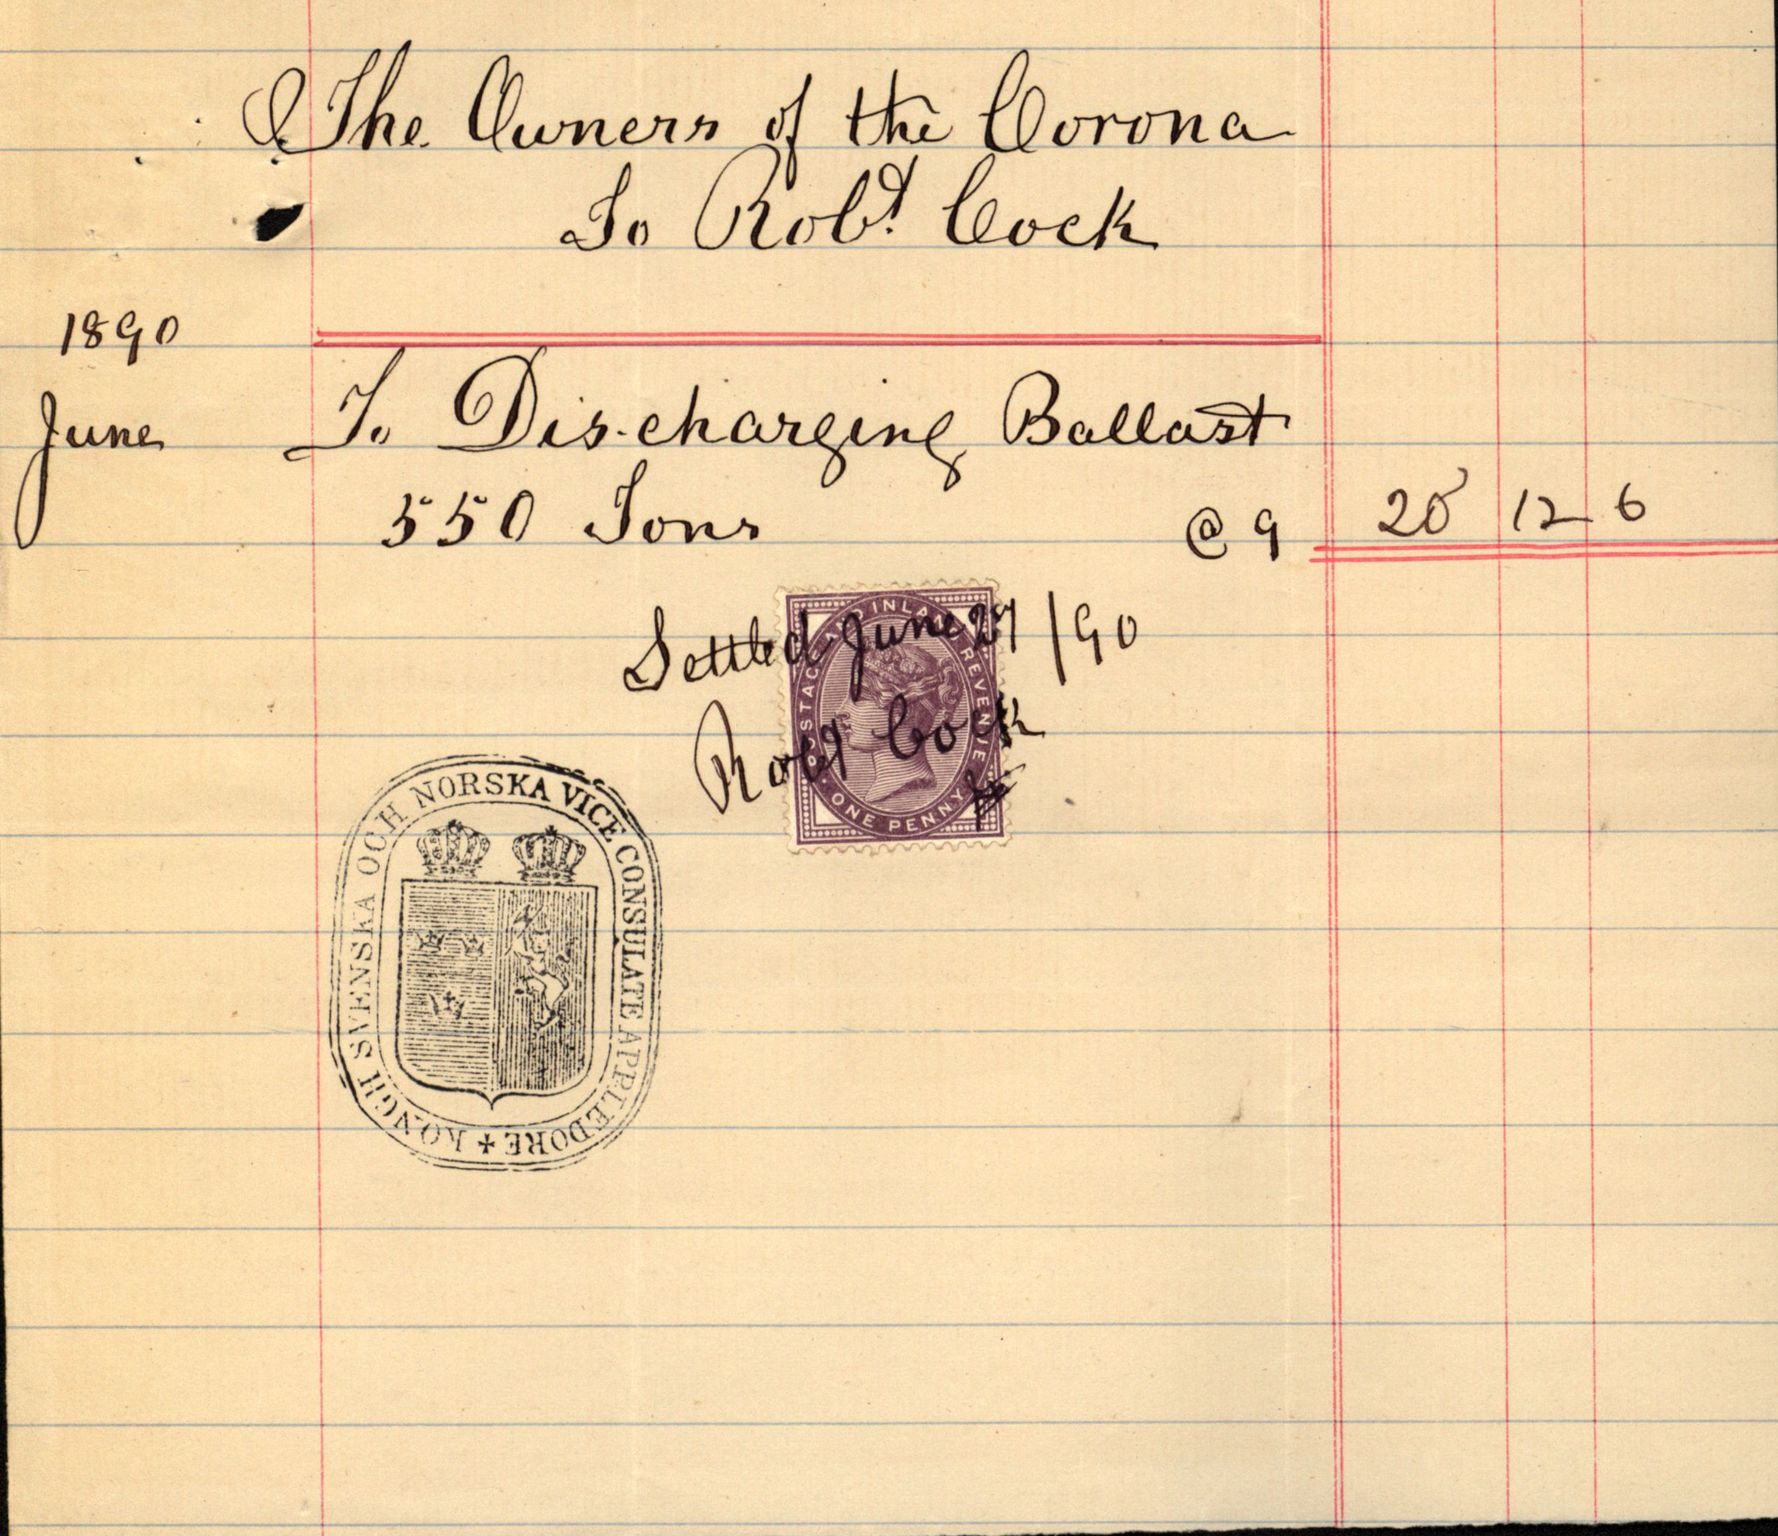 The Owners of the Corona
To Robt. Cock
1890
June To Discharging Ballast
550 Tons @ 9 20 12 6
Settled June 27/90
Robt Cock
POSTAGE AND INLAND REVENUE
ONE PENNY
KONGL SVENSKA OCH NORSKA VICE CONSULATE APPLEDORE